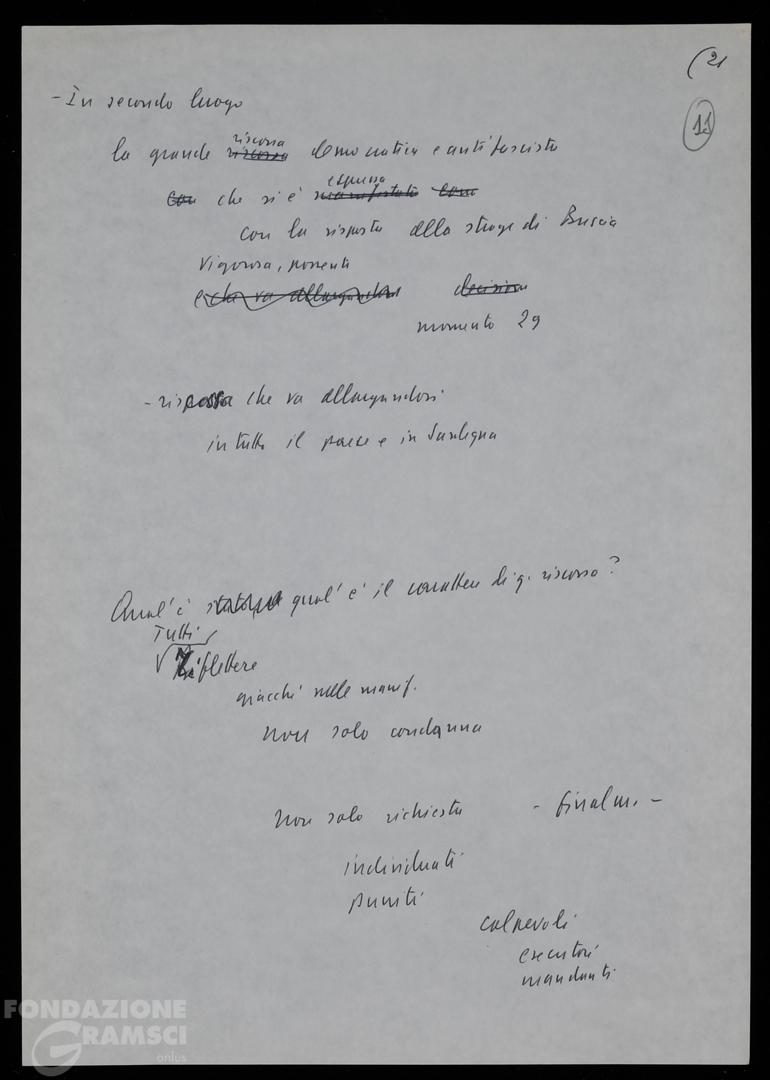 (21
11
- In secondo luogo
la grande riscossa riscossa democratica e antifascista
con che si è espressa manifestata come
con la risposta alla strage di Brescia
vigorosa, possente
e che va allargandosi decisione
momento 29
- risposta che va allargandosi
in tutto il paese e in Sardegna
Qual'è stato, qual'è il carattere di q. riscossa?
Tutti
Riflettere
giacché nelle manif.
Non solo condanna
Non solo richiesta - finalm. -
individuati
puniti
colpevoli
esecutori
mandanti
FONDAZIONE
GRAMSCI
onlus